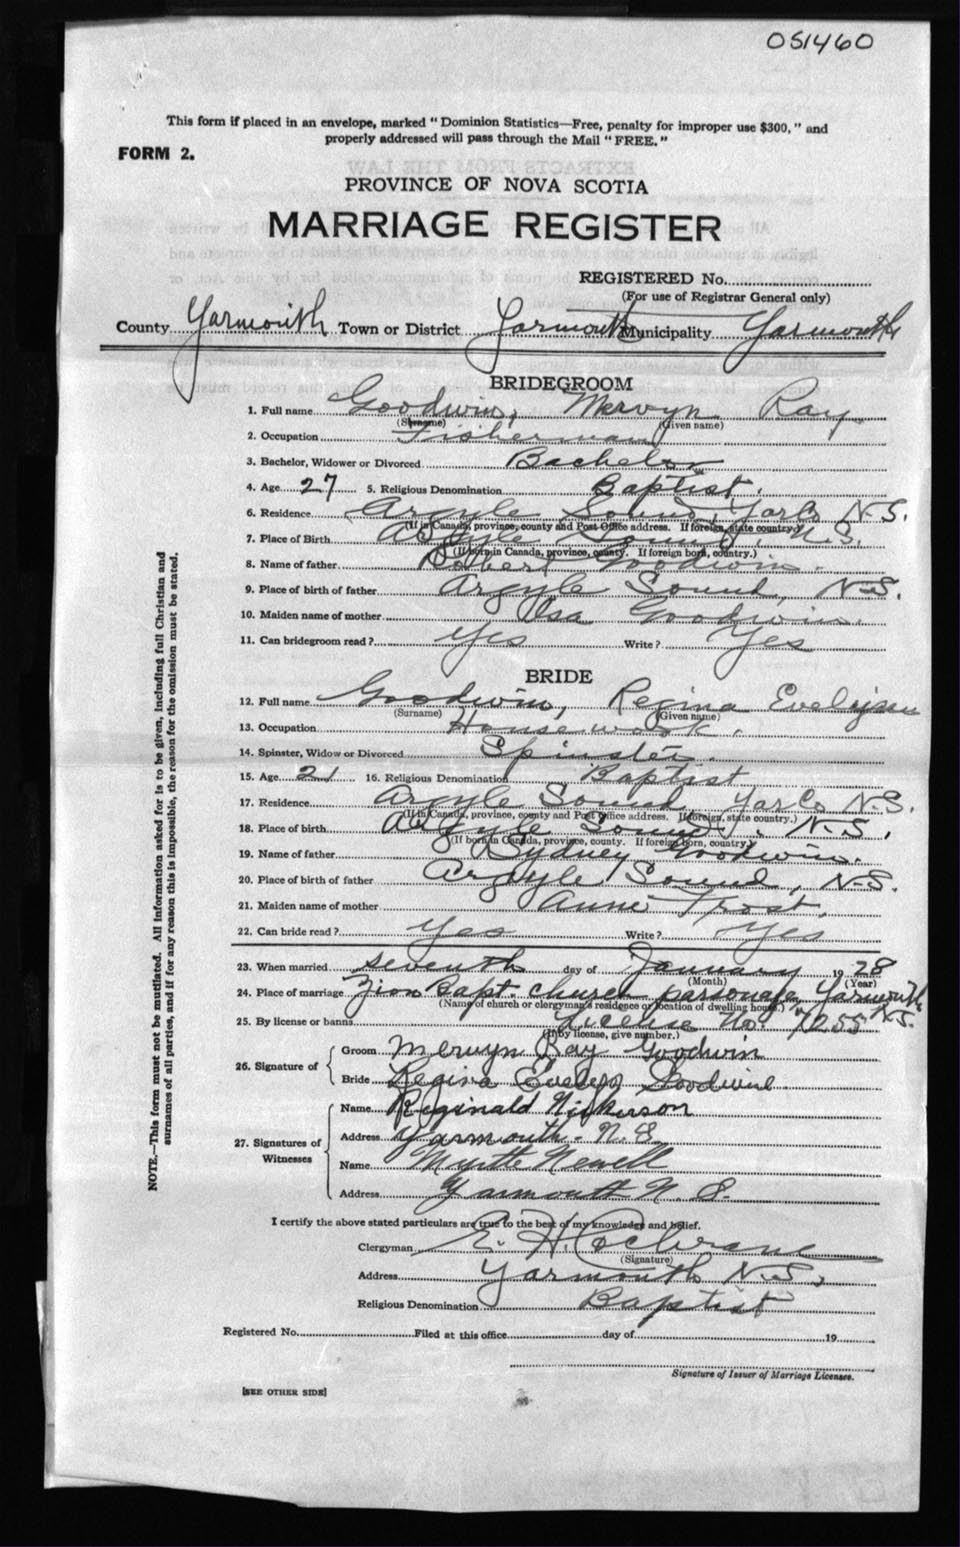 051460
This form if placed in an envelope, marked "Dominion Statistics—Free, penalty for improper use $300," and
properly addressed will pass through the Mail "FREE."
FORM 2.
PROVINCE OF NOVA SCOTIA
MARRIAGE REGISTER
REGISTERED No.
(For use of Registrar General only)
County Yarmouth Town or District Yarmouth Municipality Yarmouth
BRIDEGROOM
1. Full name Goodwin, Mervyn Ray
(Surname) (Given name)
2. Occupation Fisherman
3. Bachelor, Widower or Divorced Bachelor
4. Age 27 5. Religious Denomination Baptist.
6. Residence Argyle Sound, Yar Co N.S.
(If in Canada, province, county and Post Office address. If foreign, state country.)
7. Place of Birth Argyle Sound, N.S.
(If born in Canada, province, county. If foreign born, country.)
8. Name of father Robert Goodwin.
9. Place of birth of father Argyle Sound, N.S.
10. Maiden name of mother Goodwin.
11. Can bridegroom read? Yes Write? Yes
BRIDE
12. Full name Goodwin, Regina
(Surname) (Given name)
13. Occupation Housework.
14. Spinster, Widow or Divorced Spinster.
15. Age 21 16. Religious Denomination Baptist
17. Residence Argyle Sound, Yar Co N.S.
(If in Canada, province, county and Post Office address. If foreign, state country.)
18. Place of birth Argyle Sound, N.S.
(If born in Canada, province, county. If foreign born, country.)
19. Name of father Sydney Goodwin.
20. Place of birth of father Argyle Sound, N.S.
21. Maiden name of mother Anne Frost.
22. Can bride read? Yes Write? Yes
23. When married seventh day of January 1928
(Month) (Year)
24. Place of marriage Zion Bapt. church parsonage, Yarmouth
(Name of church or clergyman's residence or location of dwelling house.) N.S.
25. By license or banns License No. 7255
(If by license, give number.)
26. Signature of
Groom Mervyn Ray Goodwin
Bride Regina Evelyn Goodwin
27. Signatures of Witnesses
Name Reginald Nickerson
Address Yarmouth. N.S.
Name Myrtle Newell
Address Yarmouth N.S.
I certify the above stated particulars are true to the best of my knowledge and belief.
Clergyman E. H. Cochrane
(Signature)
Address Yarmouth N.S.
Religious Denomination Baptist
Registered No. Filed at this office day of 19
Signature of Issuer of Marriage Licenses.
[SEE OTHER SIDE]
NOTE.—This form must not be mutilated. All information asked for is to be given, including full Christian and
surnames of all parties, and if for any reason this is impossible, the reason for the omission must be stated.